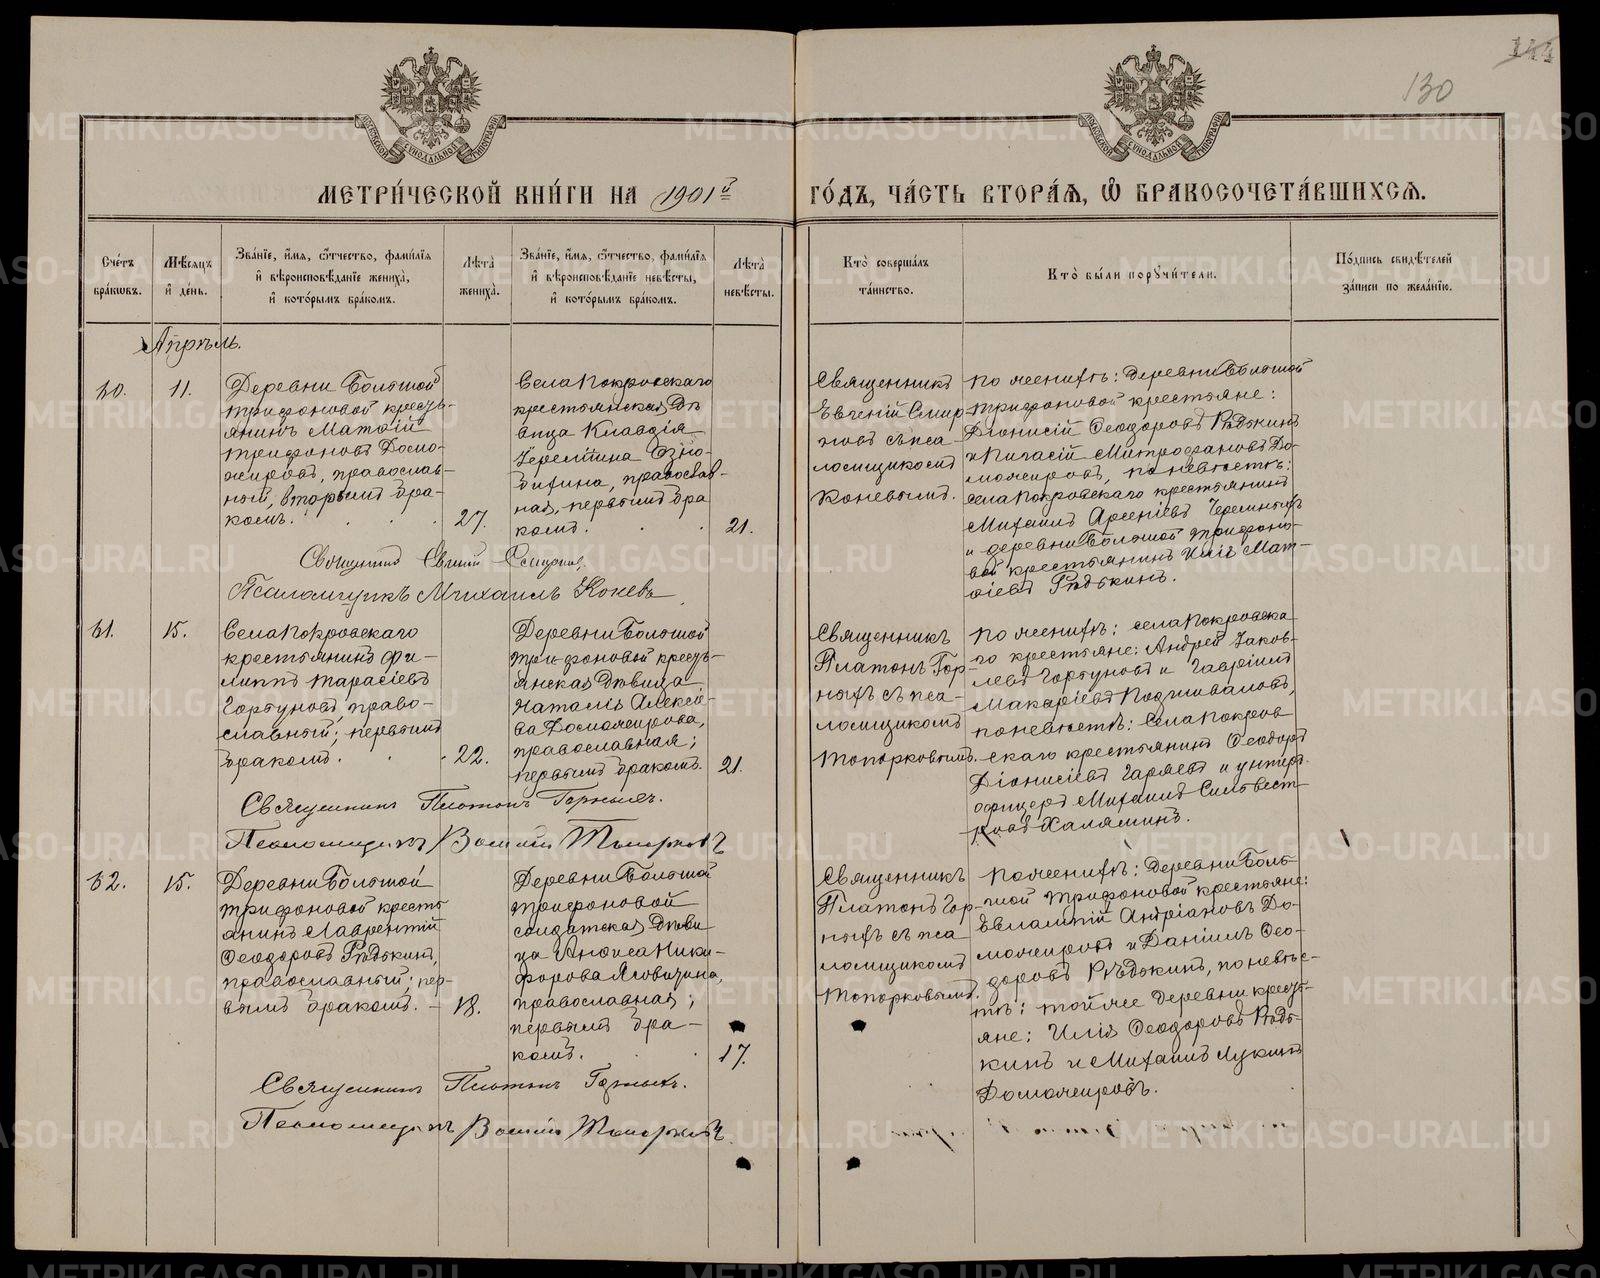 144
130
МОСКОВСКОЙ СѴНОДАЛЬНОЙ ТИПОГРАФІИ
МОСКОВСКОЙ СѴНОДАЛЬНОЙ ТИПОГРАФІИ
МЕТРИ́ЧЕСКОЙ КНИ́ГИ НА 1901й ГО́ДЪ, ЧА́СТЬ ВТОРА́Ѧ, Ѡ҆ БРАКОСОЧЕТА́ВШИХСѦ.
Сче́тъ
бра́кѡвъ.
Мѣ́сѧцъ
и҆ де́нь.
Зва́нїе, и҆́мѧ, ѻ҆́тчество, фами́лїѧ
и҆ вѣроисповѣ́данїе жениха̀,
и҆ кото́рымъ бра́комъ.
Лѣ́та̀
жениха̀.
Зва́нїе, и҆́мѧ, ѻ҆́тчество, фами́лїѧ
и҆ вѣроисповѣ́данїе невѣ́сты,
и҆ кото́рымъ бра́комъ.
Лѣ́та̀
невѣ́сты.
Кто̀ соверша́лъ
та́инство.
Кто̀ бы́ли порꙋчи́тели.
По́дпись свидѣ́телей
за́писи по жела́нїю.
Апрѣль.
60.
11.
Деревни Большой
Трифоновой кресть-
янинъ Матѳій
Трифоновъ Домо-
жировъ, православ-
ный, вторымъ бра-
комъ.
27.
Села Покровскаго
крестьянская дѣ-
вица Клавдія
православ-
ная, первымъ бра
комъ.
21.
Священникъ
Евгеній Смир-
новъ съ пса-
ломщикомъ
Коневымъ.
По женихѣ: деревни Большой
Трифоновой крестьяне:
Діонисій Ѳеодоровъ Рѣдькинъ
и Митрофановъ До-
можировъ, по невѣстѣ:
села Покровскаго крестьянинъ
Михаилъ Арсеніевъ
и деревни Большой Трифоно-
вой крестьянинъ Илія Мат-
ѳіевъ Рѣдькинъ.
Священникъ Евгеній Смирновъ
Псаломщикъ Михаилъ Коневъ
61.
15.
Села Покровскаго
крестьянинъ Фи-
липпъ Тарасіевъ
Горбуновъ, право-
славный; первымъ
бракомъ.
22.
Деревни Большой
Трифоновой кресть-
янская дѣвица
Наталія Алексіе-
ва Доможирова,
православная;
первымъ бракомъ.
21.
Священникъ
Платонъ Гор-
ныхъ съ пса-
ломщикомъ
Топорковымъ.
По женихѣ: села Покровска-
го крестьяне: Андрей Іаков-
левъ Горбуновъ и Гавріилъ
Макаріевъ Подшиваловъ,
по невѣстѣ: села Покров-
скаго крестьянинъ Ѳеодоръ
Діонисіевъ и унтеръ-
офицеръ Михаилъ Сильвест-
ровъ Халяминъ.
Священникъ Платонъ Горныхъ.
Псаломщикъ Василій Топорковъ
62.
15.
Деревни Большой
Трифоновой кресть-
янинъ Лаврентій
Ѳеодоровъ Рѣдькинъ,
православный; пер-
вымъ бракомъ.
18.
Деревни Большой
Трифоновой
солдатская дѣви-
ца Анфиса Ники-
форова
православная;
первымъ бра-
комъ.
17.
Священникъ
Платонъ Гор-
ныхъ съ пса-
ломщикомъ
Топорковымъ.
По женихѣ: деревни Боль-
шой Трифоновой крестьяне:
Евлампій Андріановъ До-
можировъ и Даніилъ Ѳео-
доровъ Рѣдькинъ, по невѣс-
тѣ: той же деревни кресть-
яне: Илія Ѳеодоровъ Рѣдь-
кинъ и Михаилъ Лукинъ
Доможировъ.
Священникъ Платонъ Горныхъ.
Псаломщикъ Василій Топорковъ.
METRIKI.GASO-URAL.RU